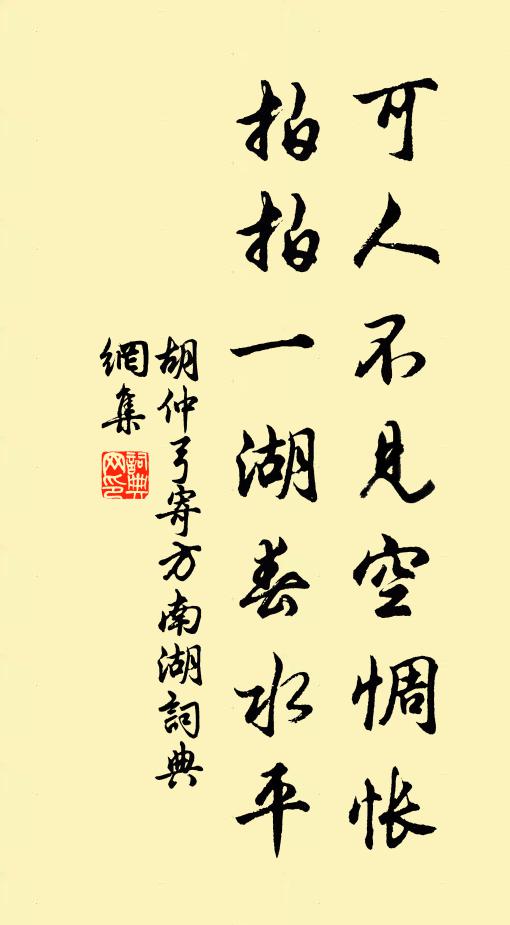 可人不见空惆怅
拍拍一湖春水平
胡仲弓寄方南湖詞典
網集
詞典网印